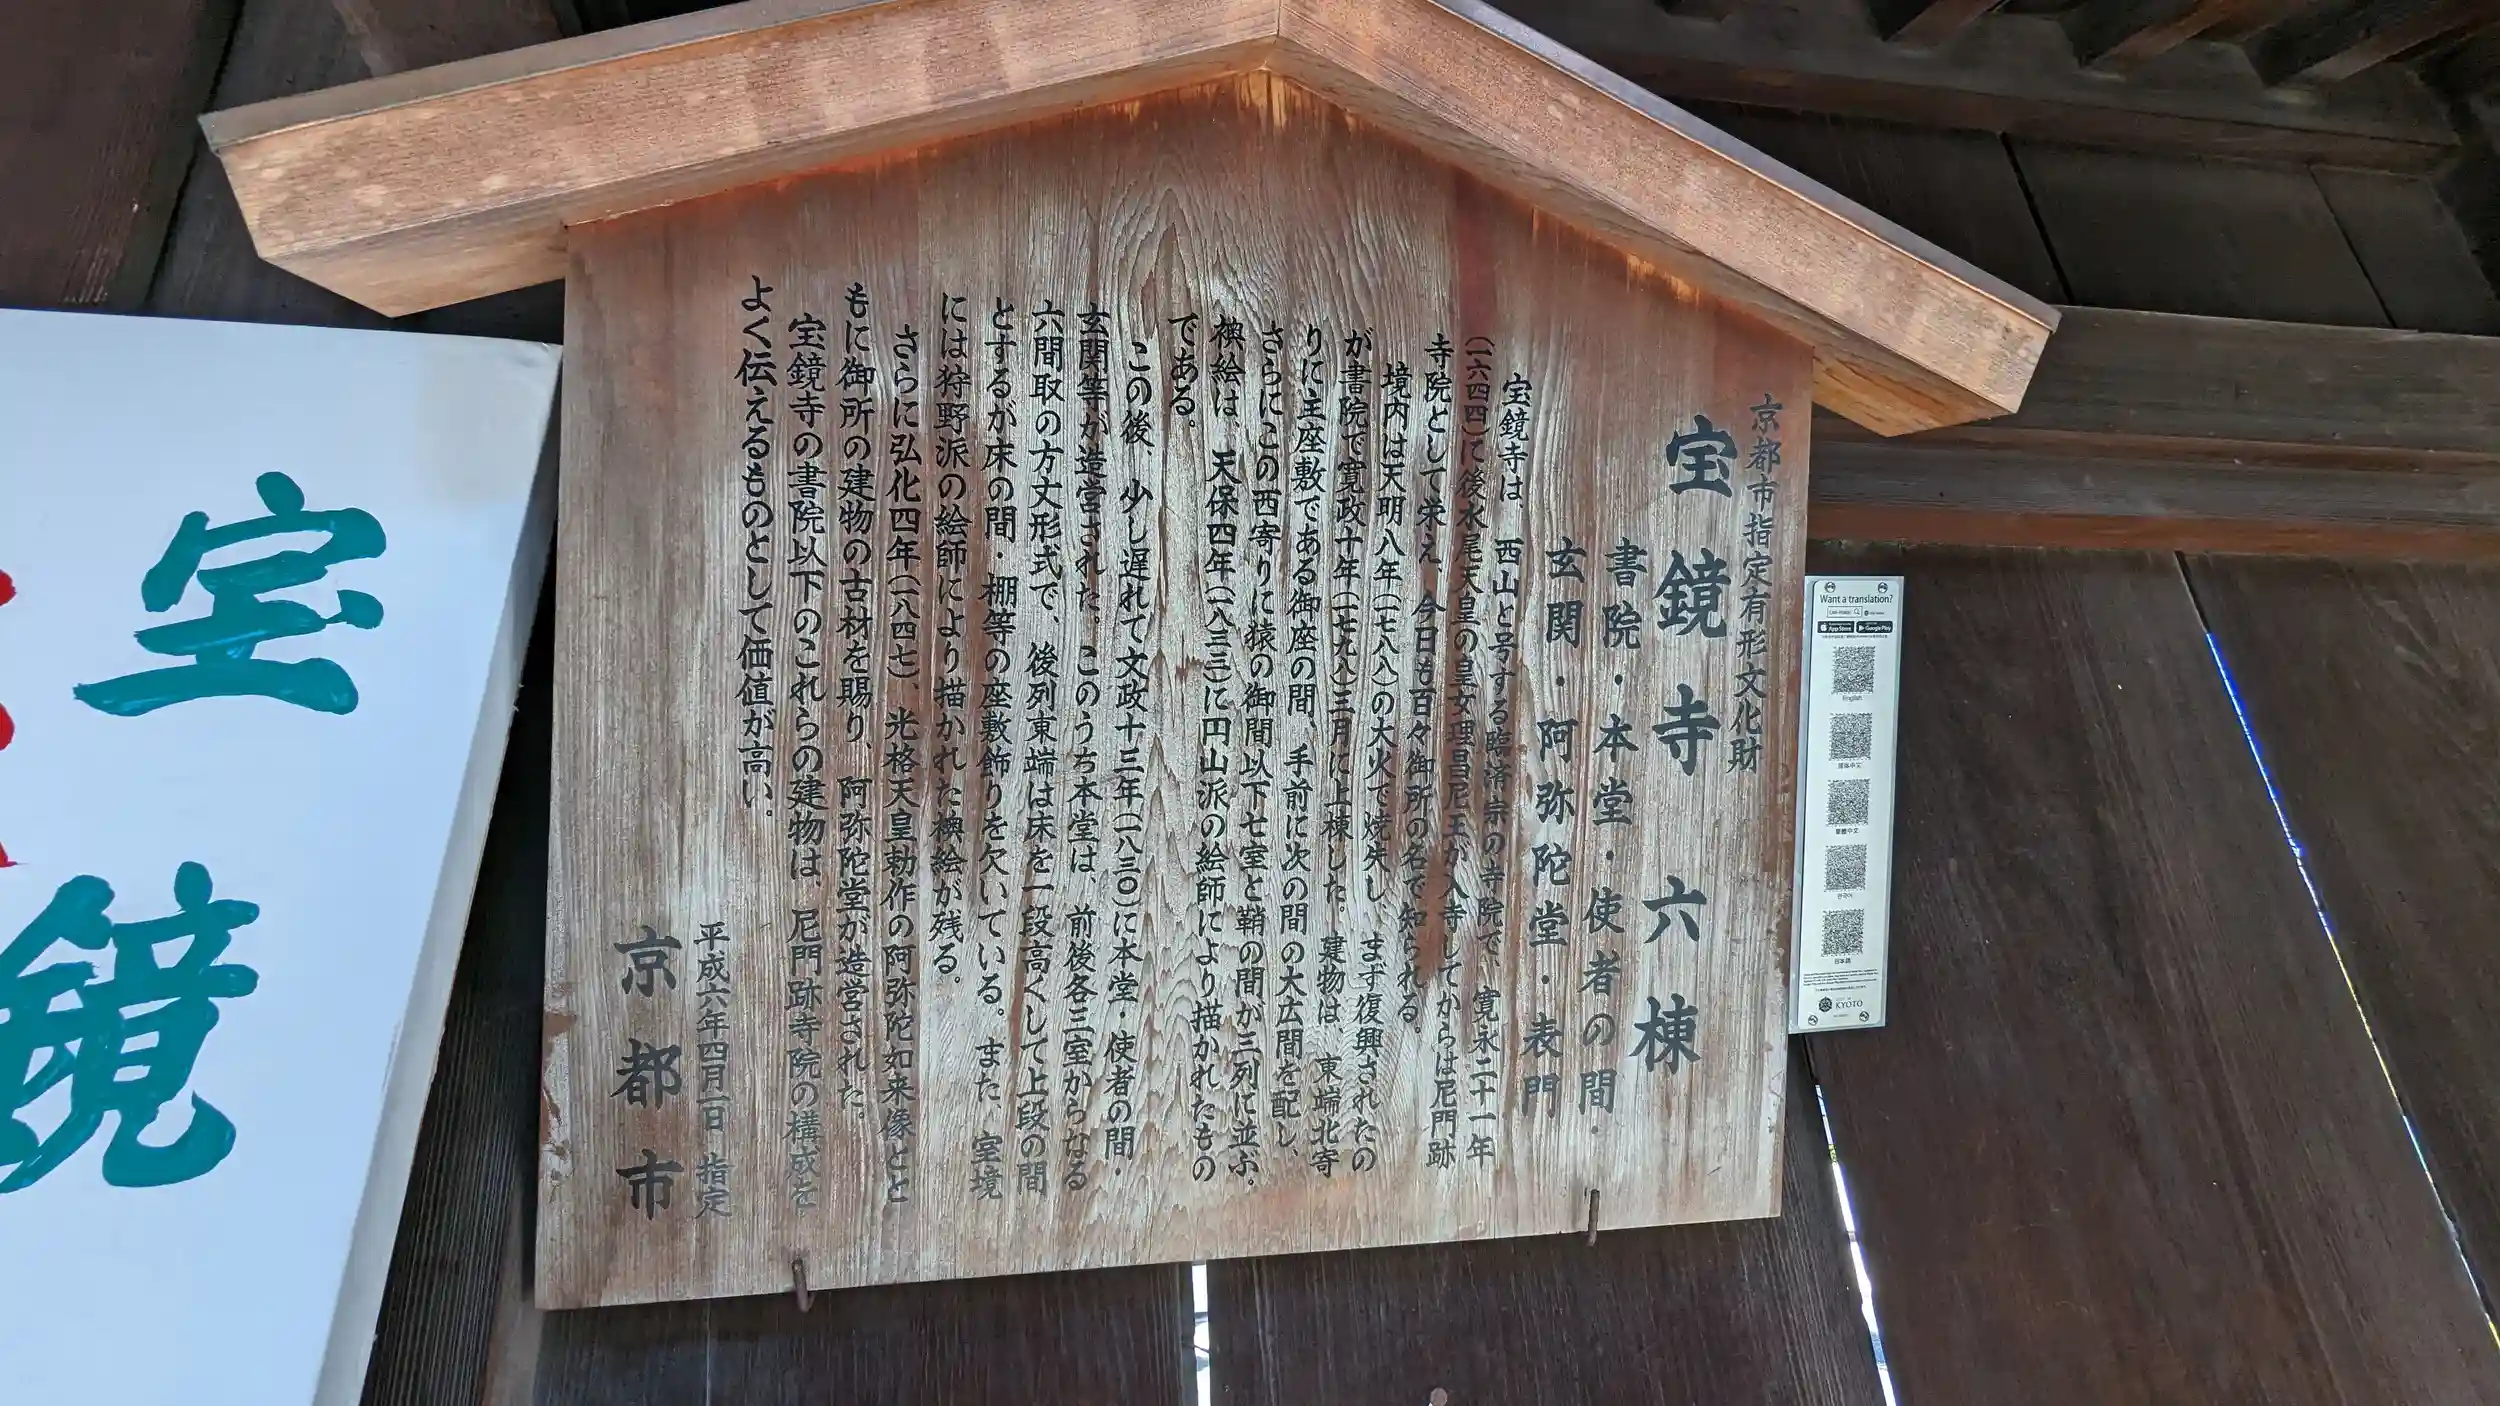 京都市指定有形文化財
宝鏡寺 六棟
書院・本堂・使者の間・
玄関・阿弥陀堂・表門
宝鏡寺は、西山と号する臨済宗の寺院で、寛永二十一年
(一六四四)に後水尾天皇の皇女理昌尼王が入寺してからは尼門跡
寺院として栄え、今日も百々御所の名で知られる。
境内は天明八年(一七八八)の大火で焼失し、まず復興されたの
が書院で寛政十年(一七九八)三月に上棟した。建物は、東端北寄
りに主座敷である御座の間、手前に次の間の大広間を配し、
さらにこの西寄りに猿の御間以下七室と鞘の間が三列に並ぶ。
襖絵は、天保四年(一八三三)に円山派の絵師により描かれたもの
である。
この後、少し遅れて文政十三年(一八三〇)に本堂・使者の間・
玄関等が造営された。このうち本堂は、前後各三室からなる
六間取の方丈形式で、後列東端は床を一段高くして上段の間
とするが床の間・棚等の座敷飾りを欠いている。また、室境
には狩野派の絵師により描かれた襖絵が残る。
さらに弘化四年(一八四七)、光格天皇勅作の阿弥陀如来像とと
もに御所の建物の古材を賜り、阿弥陀堂が造営された。
宝鏡寺の書院以下のこれらの建物は、尼門跡寺院の構成を
よく伝えるものとして価値が高い。
平成六年四月一日 指定
京都市
宝鏡
Want a translation?
App Store
Google Play
English
简体中文
繁體中文
한국어
日本語
CITY OF KYOTO